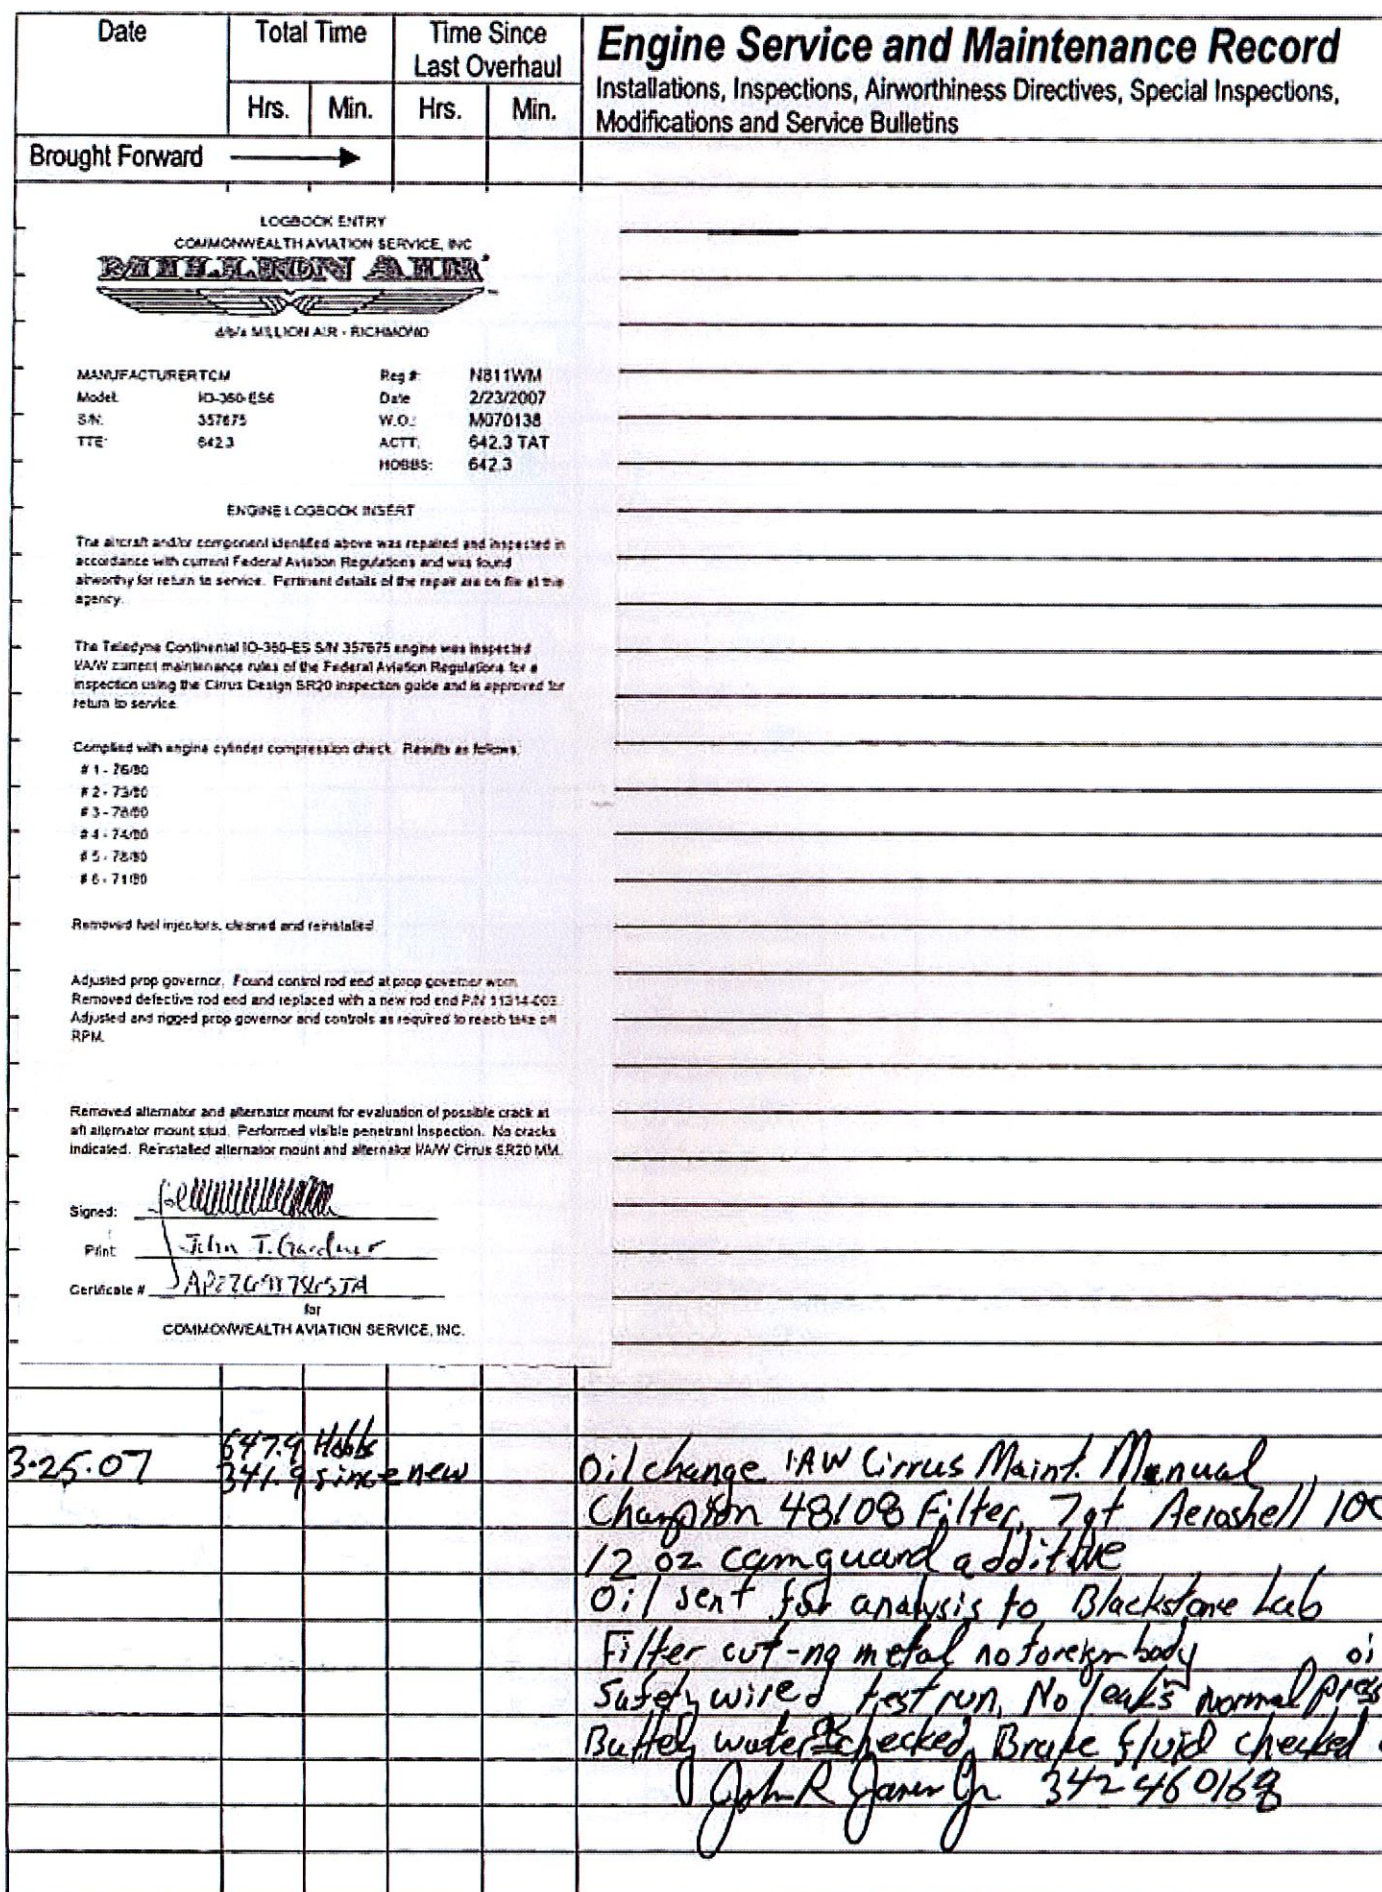 Date
Total Time
Time Since
Last Overhaul
Engine Service and Maintenance Record
Installations, Inspections, Airworthiness Directives, Special Inspections,
Modifications and Service Bulletins
Hrs.
Min.
Hrs.
Min.
Brought Forward
LOGBOOK ENTRY
COMMONWEALTH AVIATION SERVICE, INC
MILLION AIR
d/b/a MILLION AIR - RICHMOND
MANUFACTURER TCM
Reg #: N811WM
Model: IO-360-ES6
Date 2/23/2007
S/N: 357675
W.O.: M070138
TTE: 642.3
ACTT: 642.3 TAT
HOBBS: 642.3
ENGINE LOGBOOK INSERT
The aircraft and/or component identified above was repaired and inspected in
accordance with current Federal Aviation Regulations and was found
airworthy for return to service. Pertinent details of the repair are on file at this
agency.
The Teledyne Continental IO-360-ES S/N 357675 engine was inspected
I/A/W current maintenance rules of the Federal Aviation Regulations for a
inspection using the Cirrus Design SR20 inspection guide and is approved for
return to service.
Complied with engine cylinder compression check. Results as follows:
# 1 - 76/80
# 2 - 73/80
# 3 - 78/80
# 4 - 74/80
# 5 - 78/80
# 6 - 71/80
Removed fuel injectors, cleaned and reinstalled.
Adjusted prop governor. Found control rod end at prop governor worn.
Removed defective rod end and replaced with a new rod end P/N 11314-003.
Adjusted and rigged prop governor and controls as required to reach take off
RPM.
Removed alternator and alternator mount for evaluation of possible crack at
aft alternator mount stud. Performed visible penetrant inspection. No cracks
indicated. Reinstalled alternator mount and alternator I/A/W Cirrus SR20 MM.
Signed:
Print John T. Gardner
Certificate #
for
COMMONWEALTH AVIATION SERVICE, INC.
647.9 Hobbs
3.25.07 341.9 since new
Oil change IAW Cirrus Maint. Manual
Champion 48108 Filter, 7qt Aeroshell 100
12 oz camguard additive
Oil sent for analysis to Blackstone Lab
Filter cut-no metal no foreign body oi
Safety wired test run, No leaks normal press
Battery water ok checked, Brake fluid checked
John R Janes Jr 342460168